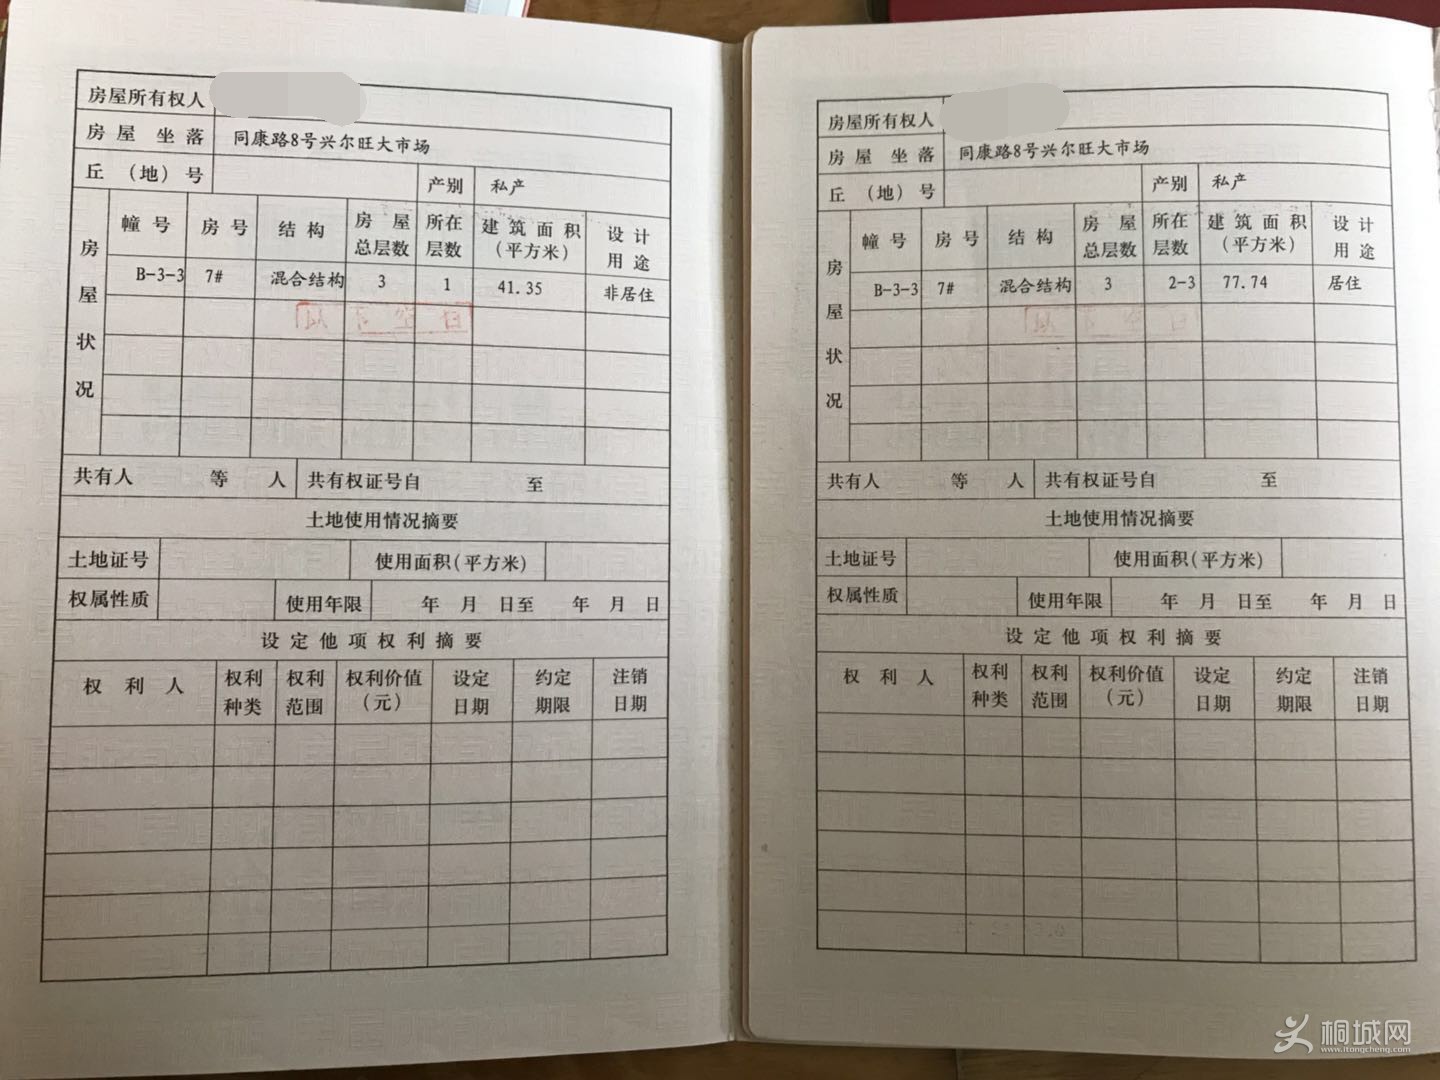 房屋所有权人
房屋坐落 同康路8号兴尔旺大市场
丘（地）号 产别 私产
房屋状况
幢号 房号 结构 房屋总层数 所在层数 建筑面积（平方米） 设计用途
B-3-3 7# 混合结构 3 1 41.35 非居住
以下空白
共有人 等 人 共有权证号自 至
土地使用情况摘要
土地证号 使用面积(平方米)
权属性质 使用年限 年 月 日至 年 月 日
设定他项权利摘要
权利人 权利种类 权利范围 权利价值（元） 设定日期 约定期限 注销日期
房屋所有权人
房屋坐落 同康路8号兴尔旺大市场
丘（地）号 产别 私产
房屋状况
幢号 房号 结构 房屋总层数 所在层数 建筑面积（平方米） 设计用途
B-3-3 7# 混合结构 3 2-3 77.74 居住
以下空白
共有人 等 人 共有权证号自 至
土地使用情况摘要
土地证号 使用面积(平方米)
权属性质 使用年限 年 月 日至 年 月 日
设定他项权利摘要
权利人 权利种类 权利范围 权利价值（元） 设定日期 约定期限 注销日期
桐城网
www.itongcheng.com